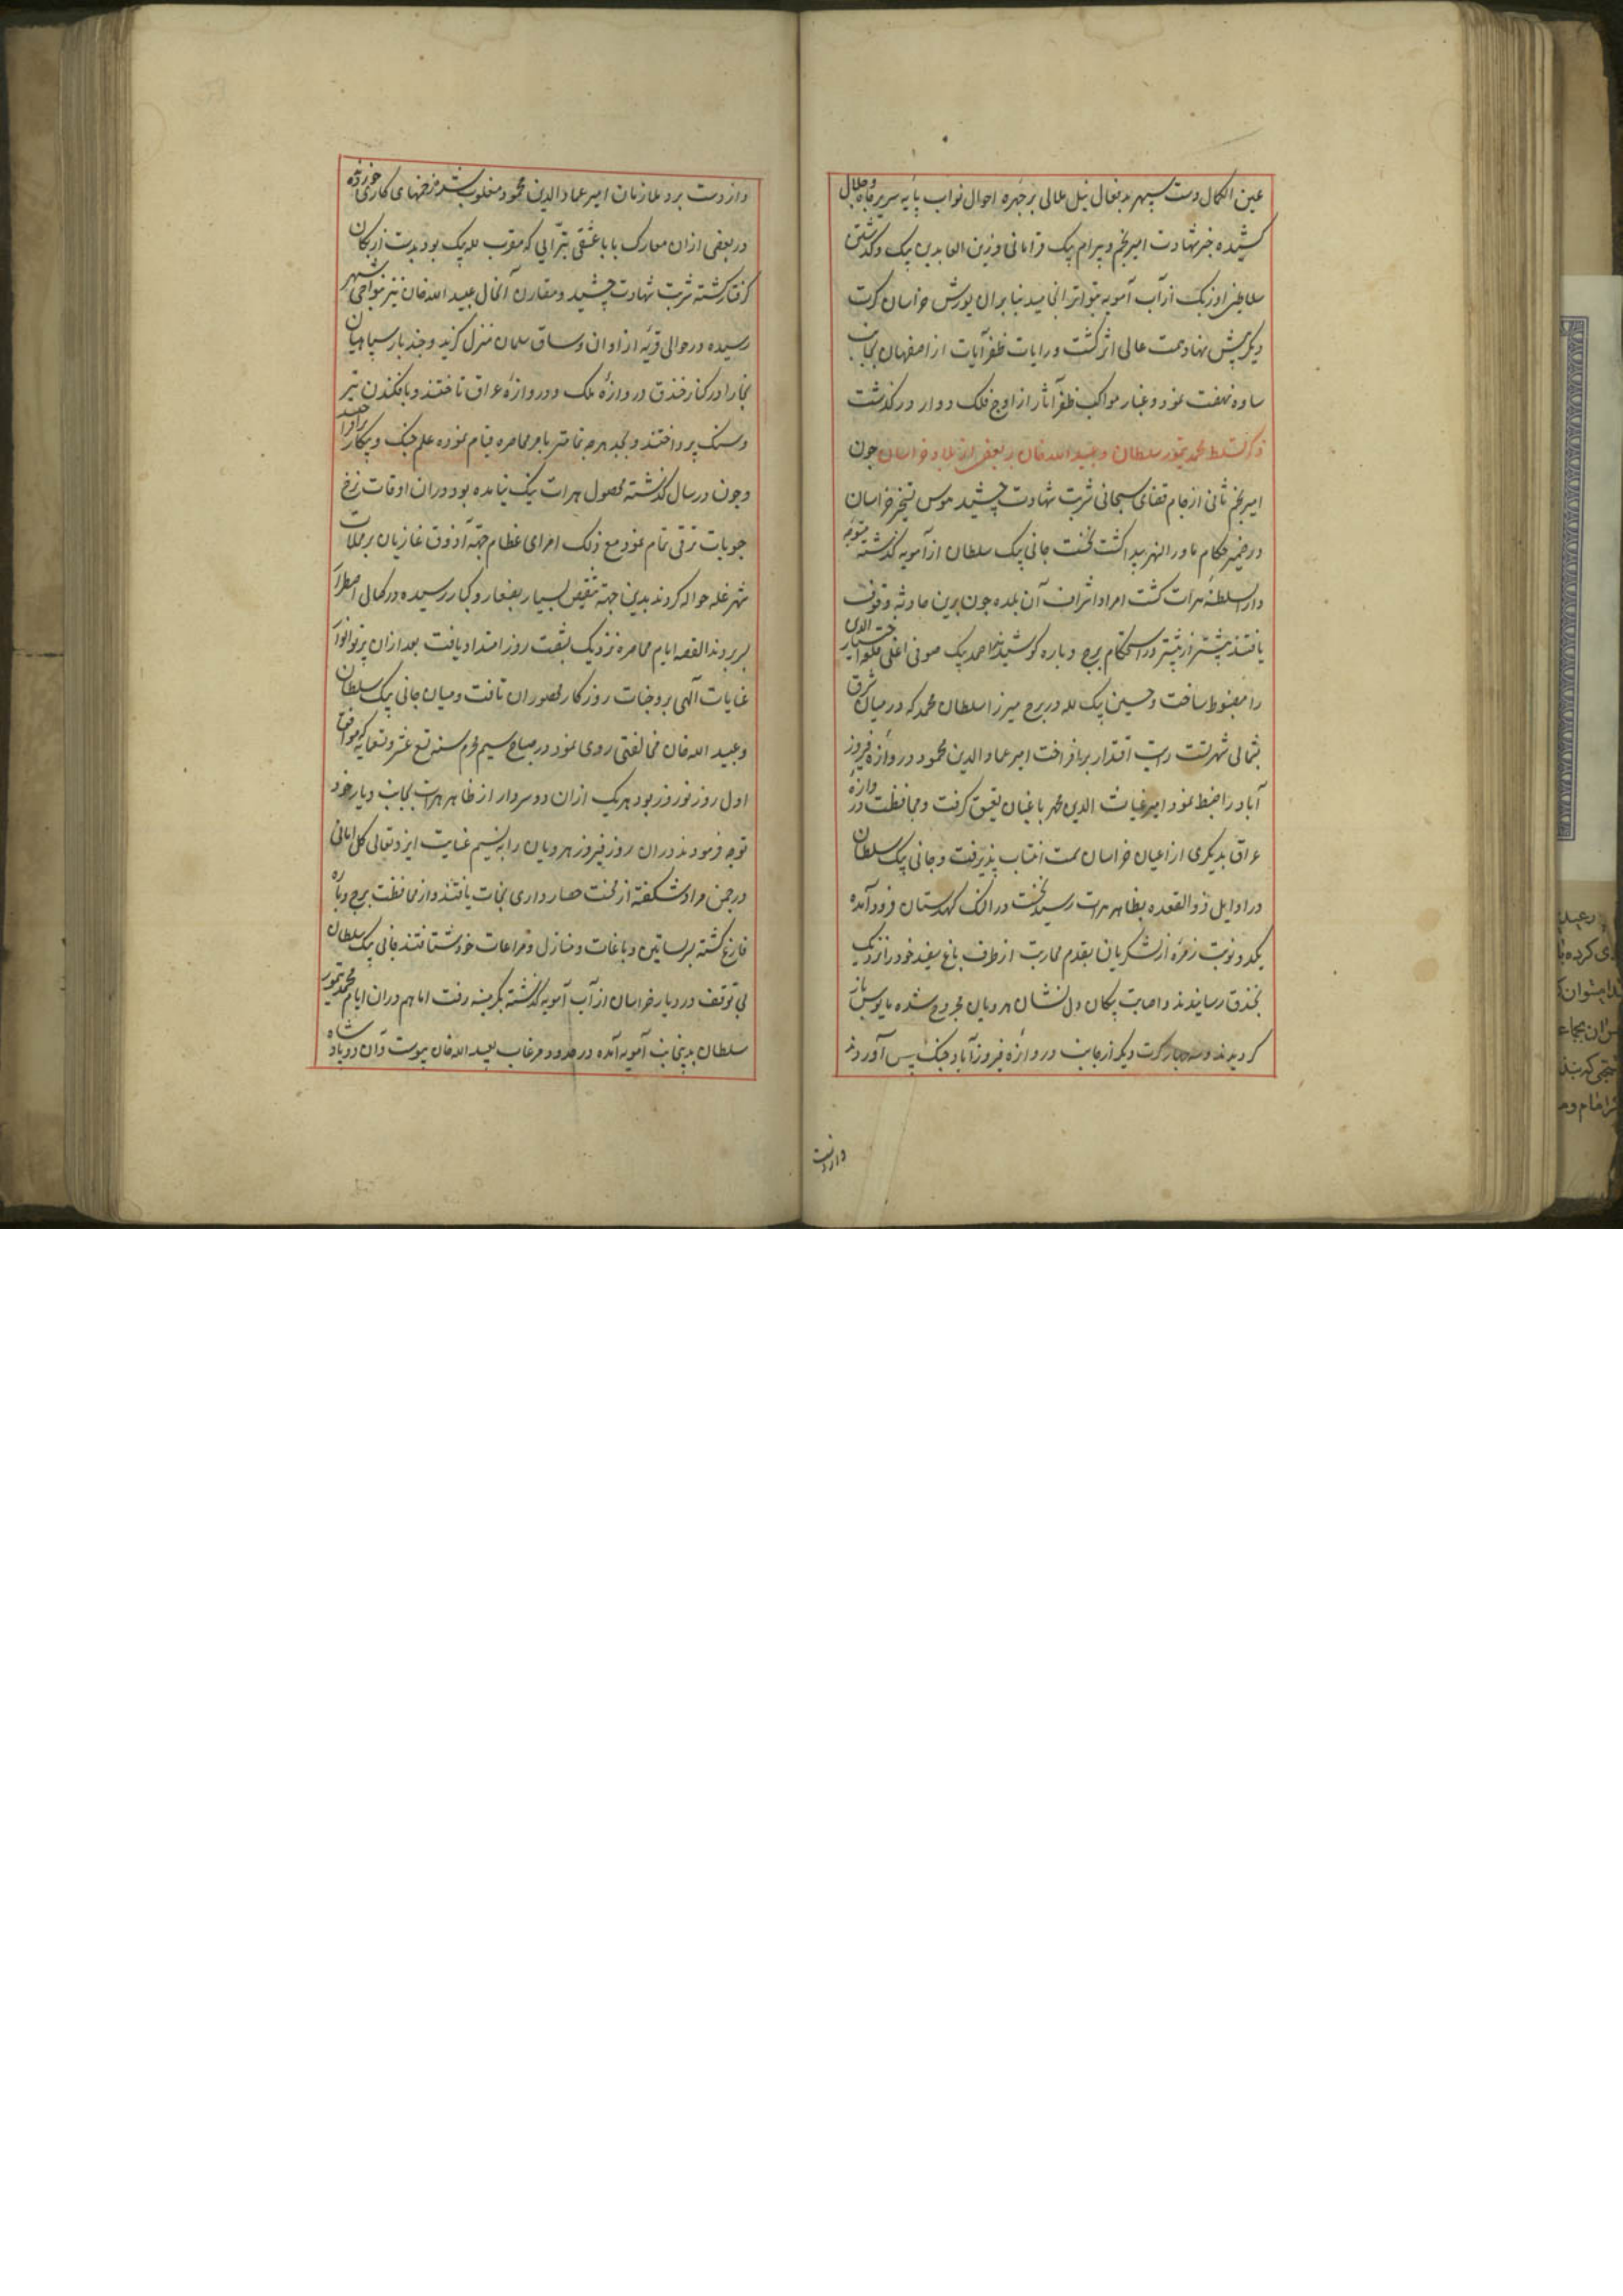 عین الکمال دست سپهر بدفعال نیل ملالی بر چهره احوال نواب پایه سریر جاه و جلال
کشیده خبر شهادت امیر نجم و بیرام بیک قرامانی و زین العابدین بیک و گذشتن
سلاطین اوزبک از آب آمویه بتواتر انجامید بنابران یورش خراسان کرت
دیگر پیش نهاد همت عالی اثر گشت و رایات ظفر آیات از اصفهان بجانب
ساوه نهضت نمود و غبار مواکب ظفر آثار از اوج فلک دوار درگذشت
ذکر تسلط محمد تیمور سلطان و عبید الله خان بر بعضی از بلاد خراسان چون
امیر نجم ثانی از جام قضای سبحانی شربت شهادت چشید هوس تسخیر خراسان
در ضمیر حکام ماورالنهر پیدا گشت نخست جانی بیک سلطان از آمویه گذشته متوجه
دار السلطنه هرات گشت امرا و اشراف آن بلده چون برین حادثه وقوف
یافتند پیشتر از پیشتر در استحکام برج و باره کوشیدند احمد بیک صوفی اغلی قلعه اختیار الدین
را مضبوط ساخت و حسین بیک لله در برج میرزا سلطان محمد که در میان شرق
شمالی شهرست رایت اقتدار برافراخت امیر عماد الدین محمود دروازه فیروز
آباد را ضبط نمود امیر غیاث الدین محمد باغبان تعیین گرفت و محافظت دروازه
عراق بدیگری از اعیان خراسان سمت انتساب پذیرفت و جانی بیک سلطان
در اوایل ذوالقعده بظاهر هرات رسید نخست در النک کهدستان فرود آمده
یکدو نوبت زمره از لشکریان بقدم محاربت از طرف باغ سفید خود را نزدیک
بخندق رسانیدند و اصابت پیکان دل نشان هرویان مجروح شده مایوس باز
گردیدند و سه چهار کرت دیگر از جانب دروازه فیروزآباد جنگ پس آوردند
واز دست
واز دست برد ملازمان امیر عماد الدین محمود مغلوب شده زخمهای کاری خوردند
در بعضی از ان معارک بابا عشقی تبرائی که مقرب لله بیک بود بدست ازبکان
گرفتار گشته شربت شهادت چشید و مقارن آنحال عبید الله خان نیز بنواحی شهر
رسیده در حوالی قریه از اوان و ساق سلمان منزل گزید و چند بار سپاهیان
بخارا در کنار خندق دروازه ملک و دروازه عراق تاختند و بافکندن تیر
و سنگ پرداختند و بجد هرچه تمامتر بامر محاصره قیام نموده علم جنک و پیکار
و چون در سال گذشته محصول هرات نیک نیامده بود در ان اوقات نرخ
حبوبات ترقی تمام نمود مع ذلک امرای عظام جهة آذوق غازیان بر محلات
شهر غله حواله کردند بدین جهة تنقیص بسیار بصغار و کبار رسیده در کمال اضطرار
بسر بردند القصه ایام محاصره نزدیک بشصت روز امتداد یافت بعد ازان پرتو انوار
عنایات آلهی بر وجنات روزکار محصوران تافت و میان جانی بیک سلطان
و عبید الله خان مخالفتی روی نمود در صباح سیم محرم سنه تسع عشر و تسعمایه که موافق
اول روز نوروز بود هر یک ازان دو سردار از ظاهر هرات بجانب دیار خود
توجه فرمودند دران روز فیروز هرویان را به نسیم عنایت ایزد تعالی گل امانی
در چمن مراد شکفته از محنت حصار داری نجات یافتند و از محافظت برج و باره
فارغ گشته بر بساتین و باغات و منازل و مزاعات خود شتافتند جانی بیک سلطان
بی توقف در دیار خراسان از آب آمویه گذشته بکرمینه رفت اما هم دران ایام محمد تیمور
سلطان بدینجانب آمویه آمده در حدود مرغاب بعبید الله خان پیوست و آن دو پادشاه